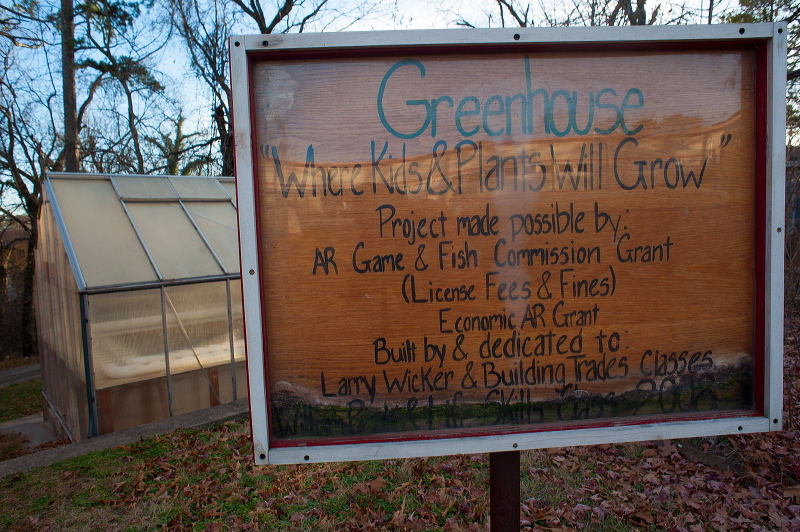 Greenhouse
"Where Kids & Plants Will Grow"
Project made possible by:
AR Game & Fish Commission Grant
(License Fees & Fines)
Economic AR Grant
Built by & dedicated to:
Larry Wicker & Building Trades Classes
& Life Skills Class 2008